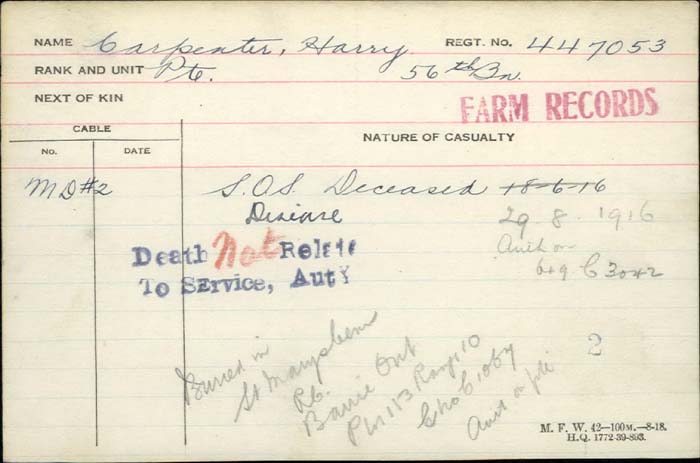 NAME Carpenter, Harry REGT. No. 447053
RANK AND UNIT Pte. 56th Bn.
NEXT OF KIN
FARM RECORDS
CABLE
NATURE OF CASUALTY
No. DATE
MD#2 S.O.S. Deceased 18-6-16
29.8.1916
Auth on
649 C 3042
Death Not Relate
To SErvice, AutY
Buried in
St Marys Cem
R.C.
Barrie Ont
2
M. F. W. 42—100M.—8-18.
H.Q. 1772-39-893.